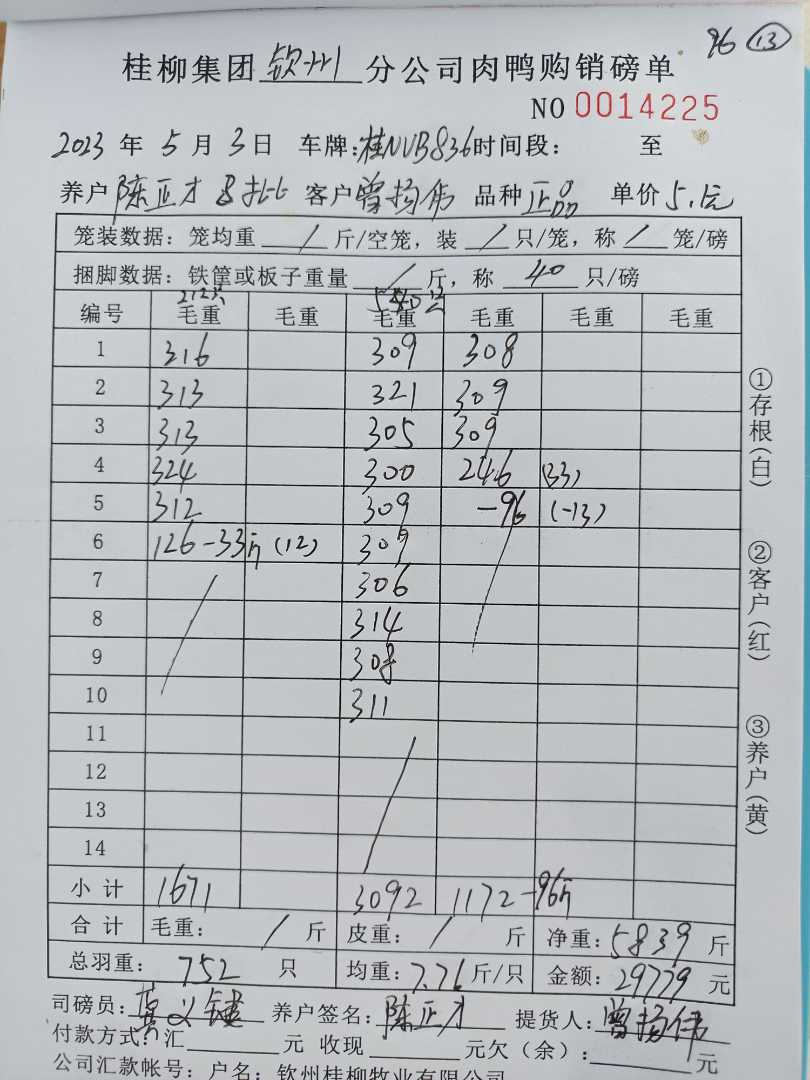 96 ⑬
桂柳集团 钦州 分公司肉鸭购销磅单
NO 0014225
2023 年 5 月 3 日 车牌:桂NVB836 时间段: 至
养户 陈正才 客户 曾扬伟 品种 正品 单价 5.1元
笼装数据: 笼均重 / 斤/空笼, 装 / 只/笼, 称 / 笼/磅
捆脚数据: 铁筐或板子重量 / 斤, 称 40 只/磅
212只
编号 毛重 毛重 毛重 毛重 毛重 毛重
1 316 309 308
2 313 321 309
3 313 305 309
4 324 300 246 (33)
5 312 309 -96 (-13)
6 126-33斤 (12) 309
7 306
8 314
9 308
10 311
11
12
13
14
小计 1671 3092 1172 -96斤
合计 毛重: / 斤 皮重: / 斤 净重: 5839 斤
总羽重: 752 只 均重: 7.76 斤/只 金额: 29779 元
司磅员: 莫义键 养户签名: 陈正才 提货人: 曾扬伟
付款方式: 汇 元 收现 元欠(余): 元
公司汇款帐号: 户名: 钦州桂柳牧业有限公司
①存根(白)
②客户(红)
③养户(黄)